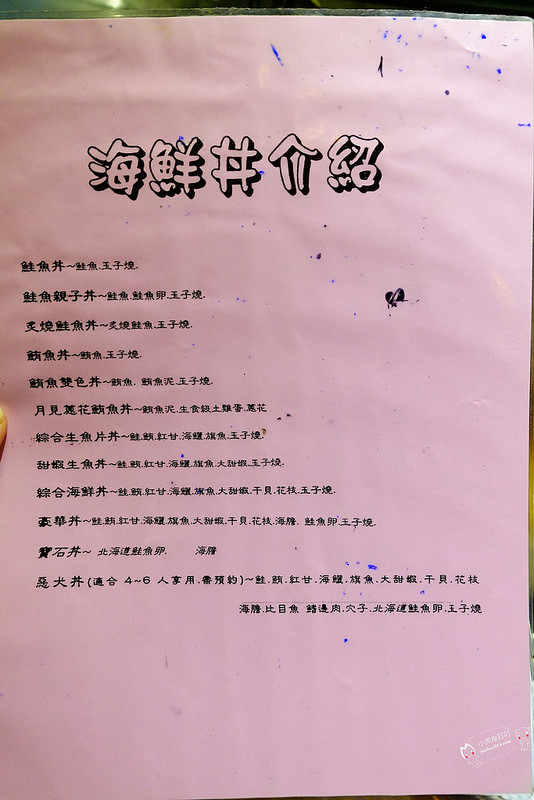 海鮮丼介紹
鮭魚丼~鮭魚.玉子燒.
鮭魚親子丼~鮭魚.鮭魚卵.玉子燒.
炙燒鮭魚丼~炙燒鮭魚.玉子燒.
鮪魚丼~鮪魚.玉子燒.
鮪魚雙色丼~鮪魚. 鮪魚泥.玉子燒.
月見蔥花鮪魚丼~鮪魚泥.生食級土雞蛋.蔥花
綜合生魚片丼~鮭.鮪.紅甘.海鱺.旗魚.玉子燒.
甜蝦生魚丼~鮭.鮪.紅甘.海鱺.旗魚.大甜蝦.玉子燒.
綜合海鮮丼~鮭.鮪.紅甘.海鱺.旗魚.大甜蝦.干貝.花枝.玉子燒.
豪華丼~鮭.鮪.紅甘.海鱺.旗魚.大甜蝦.干貝.花枝.海膽. 鮭魚卵.玉子燒.
寶石丼~ 北海道鮭魚卵. 海膽
惡犬丼(適合 4~6 人享用.需預約)~鮭.鮪.紅甘.海鱺.旗魚.大甜蝦.干貝.花枝
海膽.比目魚 鰭邊肉.穴子.北海道鮭魚卵.玉子燒